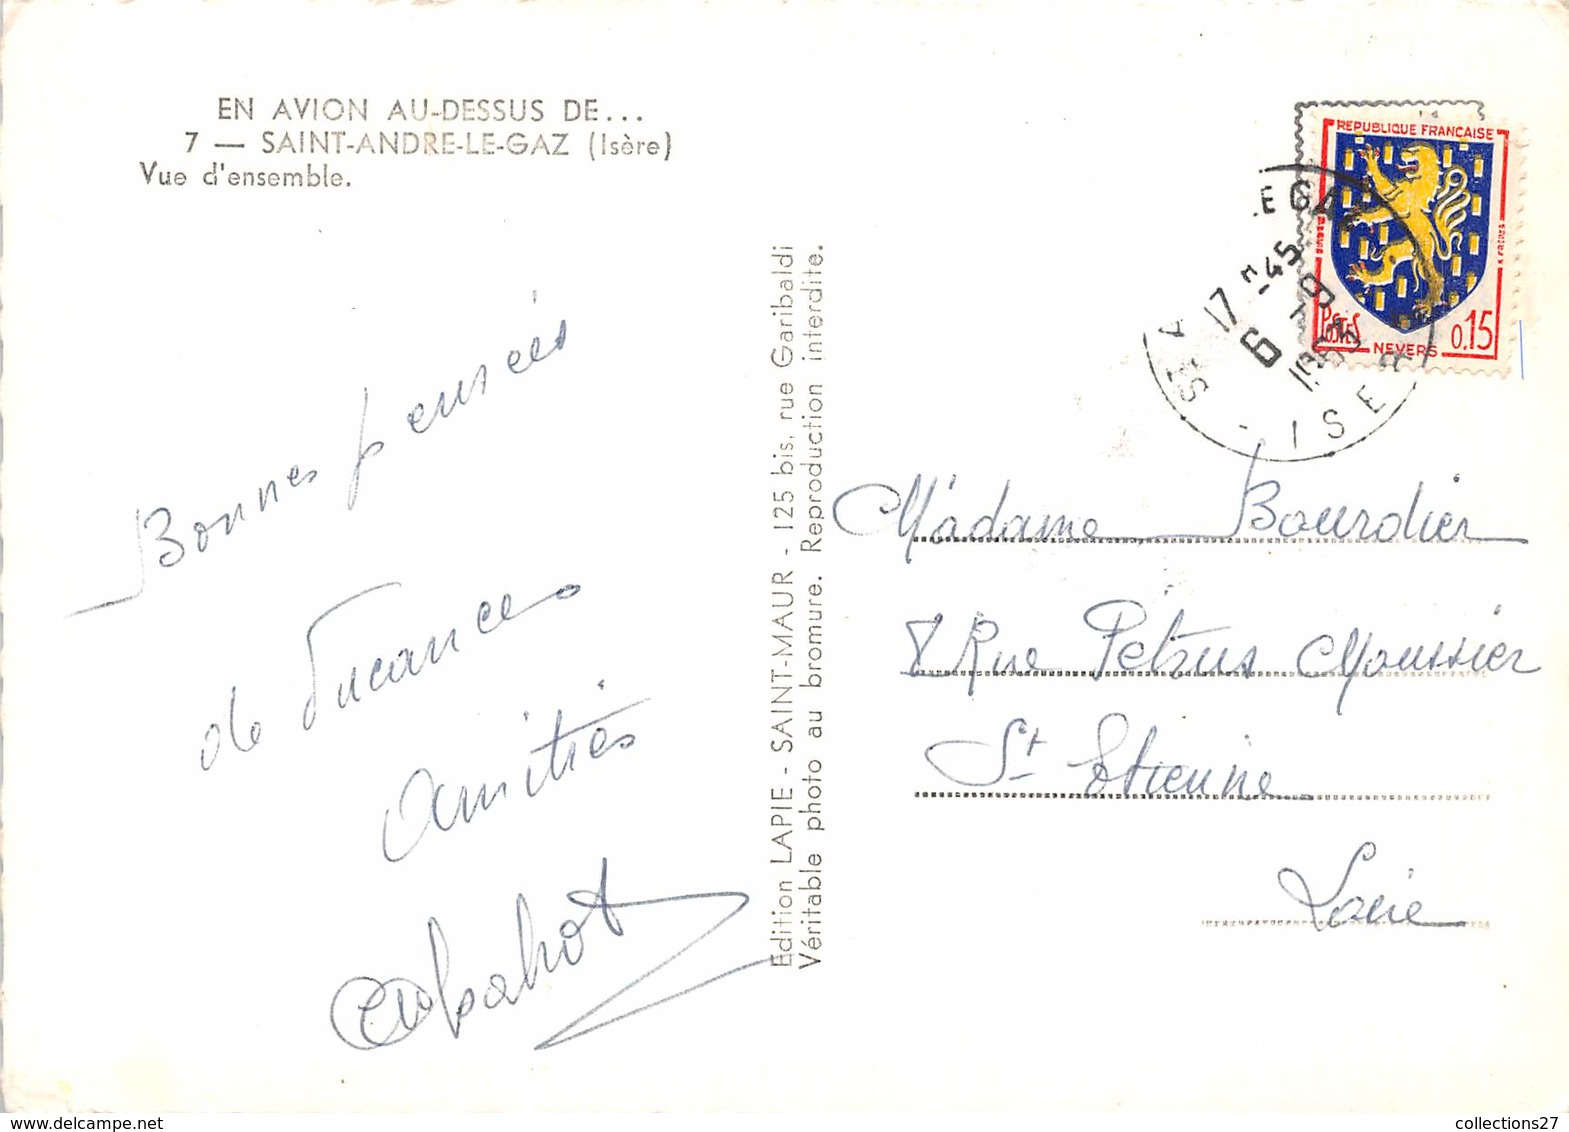 EN AVION AU-DESSUS DE...
7 — SAINT-ANDRE-LE-GAZ (Isère)
Vue d'ensemble.
Bonnes pensées
de vacances
Amitiés
Edition LAPIE - SAINT-MAUR - 125 bis, rue Garibaldi
Véritable photo au bromure. Reproduction interdite.
REPUBLIQUE FRANÇAISE
POSTES
0.15
NEVERS
E GAZ
17 H 45
6
ISERE
Madame Bourdier
8 Rue Pétrus Maussier
St Etienne
Loire
www.delcampe.net
collections27